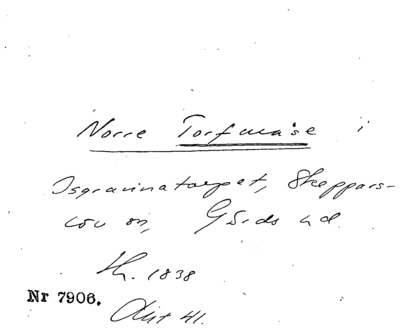 Norre Torfmåse i
Isgrannatorpet, Skeppars-
löv sn, Gärds hd
h. 1838
Nr 7906.
Akt 41.